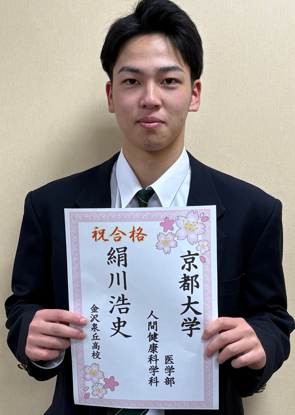 祝合格
京都大学
医学部
人間健康科学科
絹川浩史
金沢泉丘高校